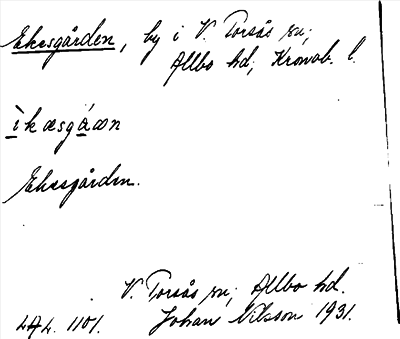 Ekesgården, by i V. Torsås sn;
Allbo hd; Kronob. l.
ìkæsgáæn
Ekesgården.
V. Torsås sn; Allbo hd.
LAL. 1101. Johan Nilsson 1931.